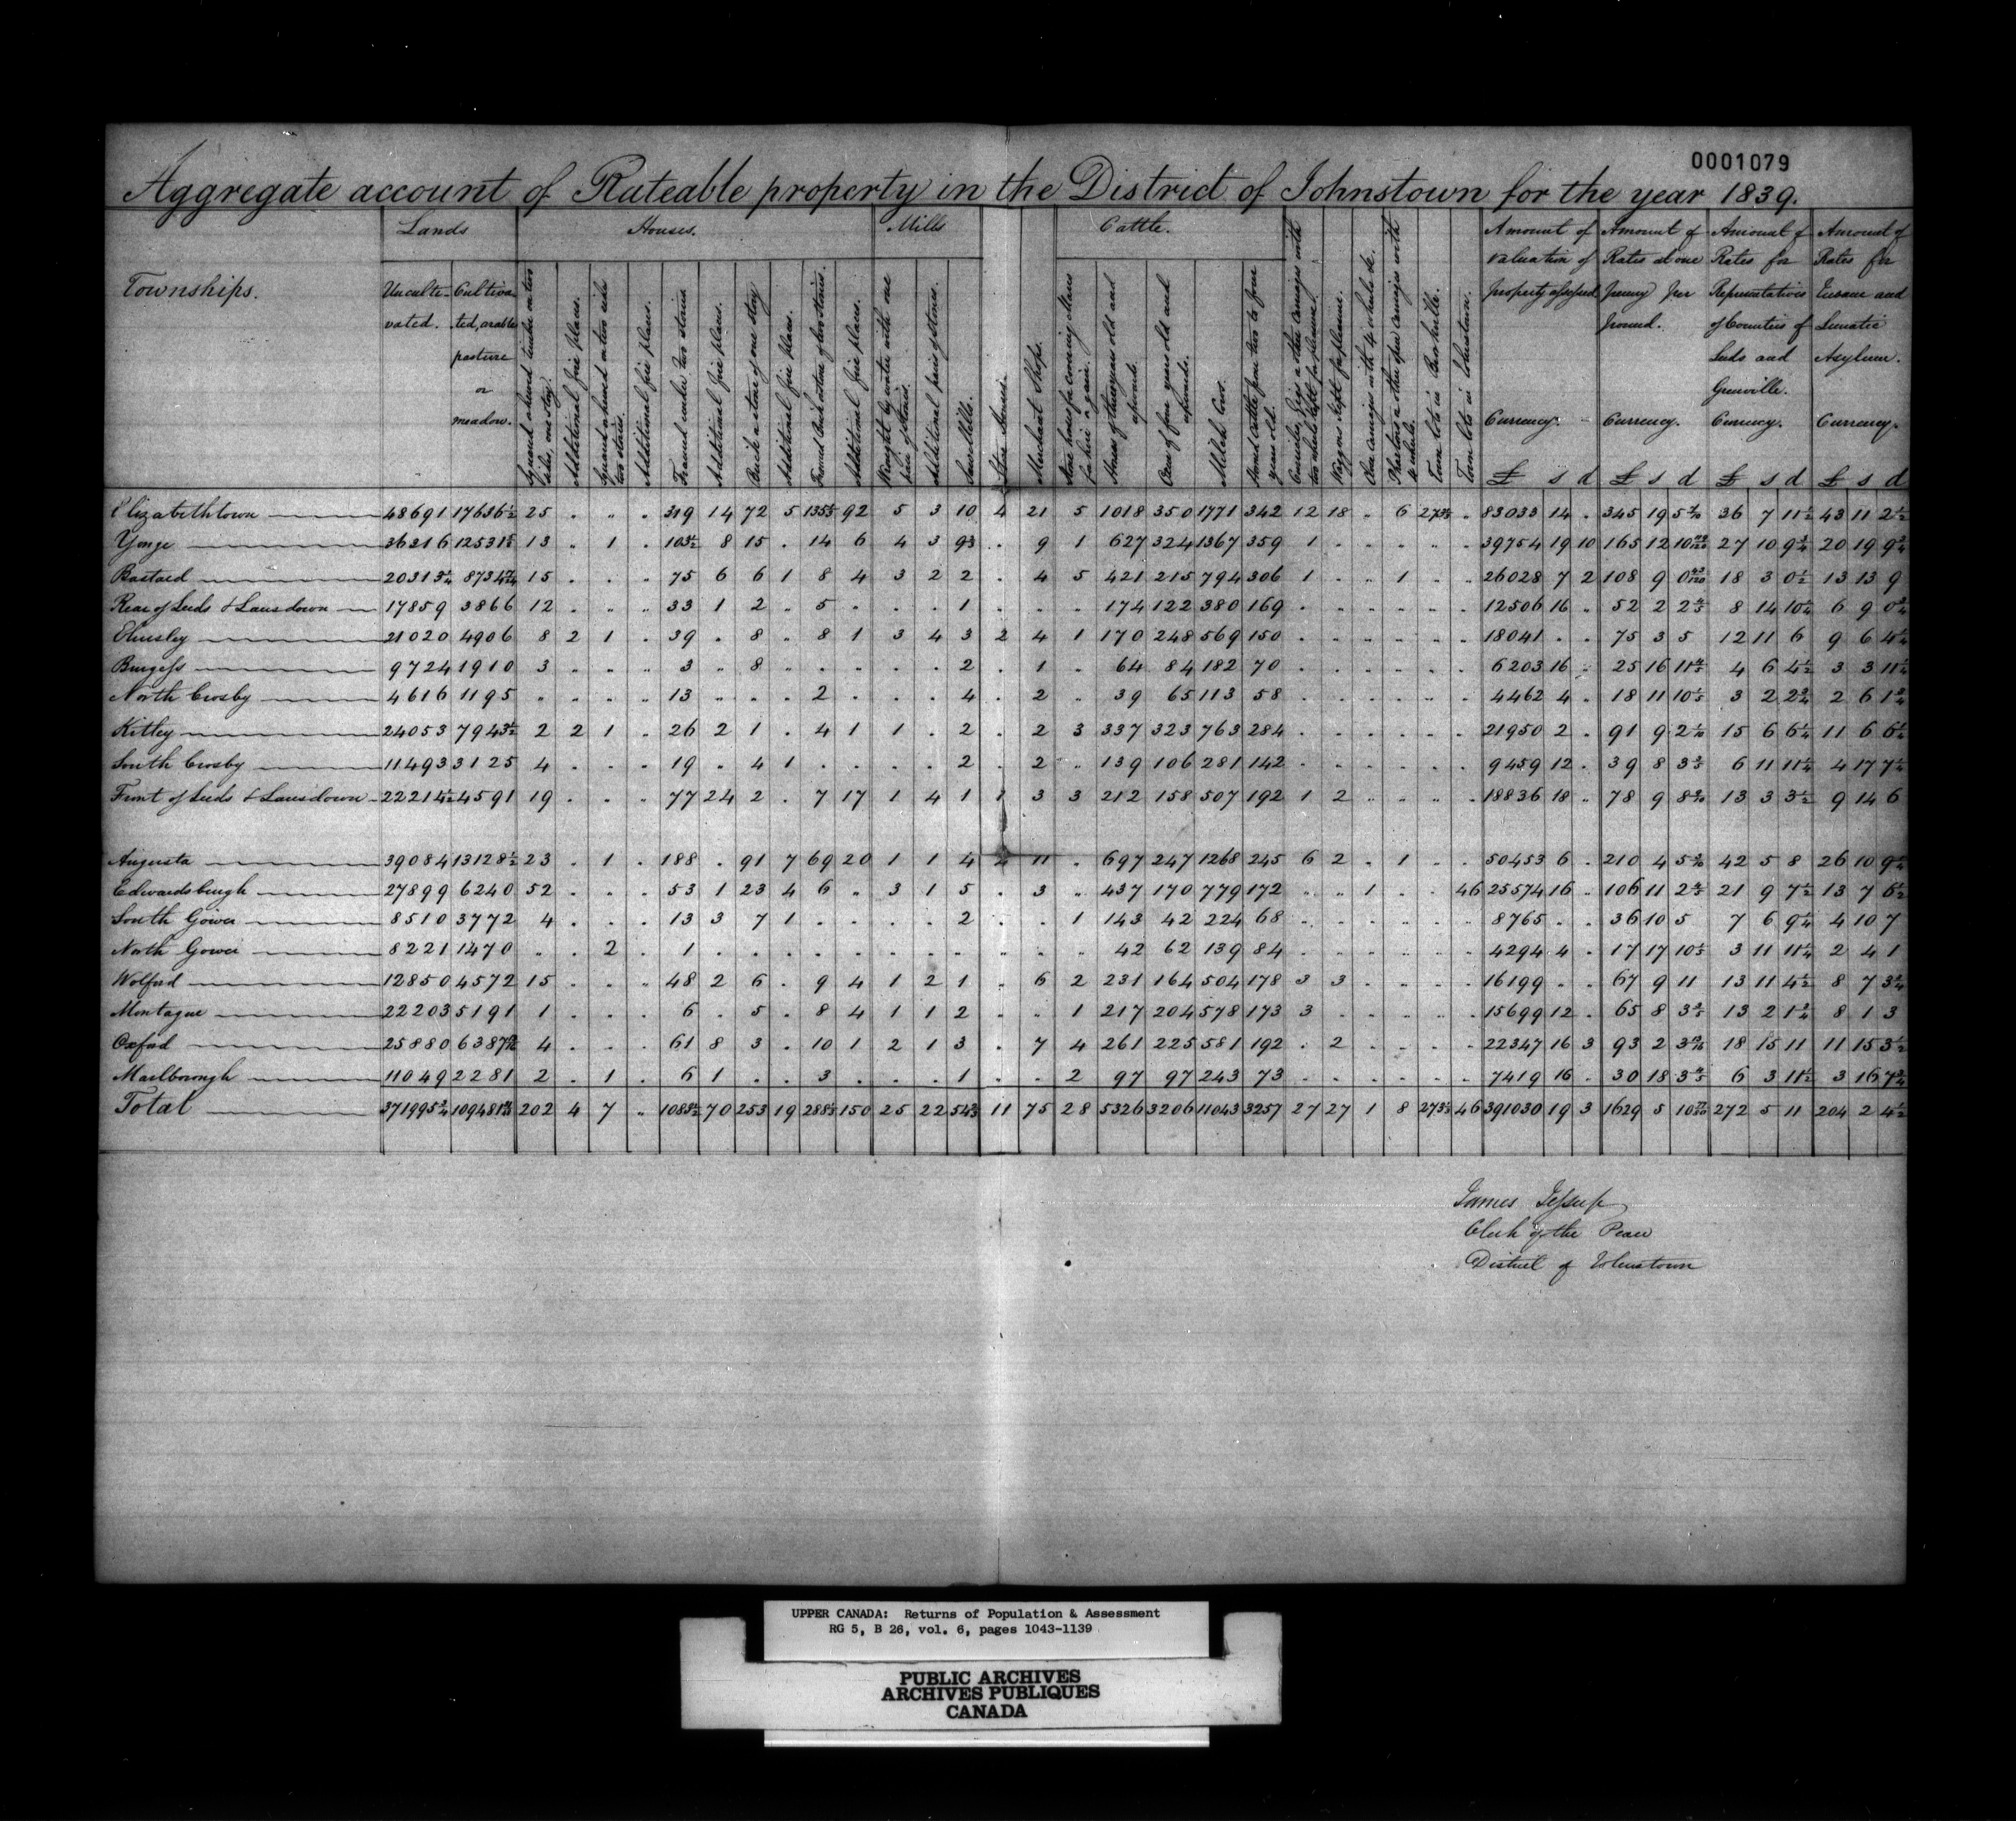 0001079
Aggregate account of Rateable property in the District of Johnstown for the year 1839.
Townships. Lands Houses. Mills Cattle.
Unculti-vated. Cultiva-ted, arable pasture or meadow.
Additional fire places.
Additional fire places.
Framed under two stories
Additional fire places.
Brick or stone of one story
Additional fire places.
Framed Brick or stone of two stories.
Additional fire places.
Wrought by water with one pair of stones.
Additional pairs of stones.
Saw Mills.
Merchant Shops.
Horses of three years old and upwards.
Oxen of four years old and upwards.
Milch Cows.
Horned Cattle from two to four years old.
Waggons kept for pleasure.
Town lots in Brockville.
Town lots in Johnstown.
Amount of valuation of property assessed Currency. £ s d
Amount of Rates at one penny per pound. Currency. £ s d
Amount of Rates for Representatives of Counties of Leeds and Grenville. Currency. £ s d
Amount of Rates for Insane and Lunatic Asylum. Currency. £ s d
Elizabethtown 48691 17636½ 25 . . . 319 14 72 5 92 5 3 10 4 21 5 1018 350 1771 342 12 18 . 6 83033 14 . 345 19 36 7 11½ 43 11 2½
Yonge 36316 13 . 1 . 103½ 8 15 . 14 6 4 3 . 9 1 627 324 1367 359 1 . . . . . 39754 19 10 165 12 27 10 9¾ 20 19 9¾
Bastard 15 . . . 75 6 6 1 8 4 3 2 2 . 4 5 421 215 794 306 1 . . 1 . . 26028 7 2 108 9 18 3 0½ 13 13 9
Rear of Leeds & Lansdown 17859 3866 12 . . . 33 1 2 . 5 . . . 1 . . . 174 122 380 169 . . . . . . 12506 16 . 52 2 8 14 10¼ 6 9 0¾
Elmsley 21020 4906 8 2 1 . 39 . 8 . 8 1 3 4 3 2 4 1 170 248 569 150 . . . . . . 18041 . . 75 3 5 12 11 6 9 6 4¼
Burgess 9724 1910 3 . . . 3 . 8 . . . . . 2 . 1 . 64 84 182 70 . . . . . . 6203 16 . 25 16 4 6 4½ 3 3 11½
North Crosby 4616 1195 . . . . 13 . . . 2 . . . 4 . 2 . 39 65 113 58 . . . . . . 4462 4 . 18 11 3 2 2¾ 2 6 1¾
Kitley 24053 7943½ 2 2 1 . 26 2 1 . 4 1 1 . 2 . 2 3 337 323 763 284 . . . . . . 21950 2 . 91 9 15 6 6¼ 11 6 6½
South Crosby 11493 3125 4 . . . 19 . 4 1 . . . . 2 . 2 . 139 106 281 142 . . . . . . 9459 12 . 39 8 6 11 11¼ 4 17 7½
Front of Leeds & Lansdown 4591 19 . . . 77 24 2 . 7 17 1 4 1 1 3 3 212 158 507 192 1 2 . . . . 18836 18 . 78 9 13 3 3½ 9 14 6
Augusta 39084 13128½ 23 . 1 . 188 . 91 7 69 20 1 1 4 2 11 . 697 247 1268 245 6 2 . 1 . . 50453 6 . 210 4 42 5 8 26 10 9¾
Edwardsburgh 27899 6240 52 . . . 53 1 23 4 6 . 3 1 5 . 3 . 437 170 779 172 . . 1 . . 46 25574 16 . 106 11 21 9 7½ 13 7 6½
South Gower 8510 3772 4 . . . 13 3 7 1 . . . . 2 . . 1 143 42 224 68 . . . . . . 8765 . . 36 10 5 7 6 9¼ 4 10 7
North Gower 8221 1470 . . 2 . 1 . . . . . . . . . . . 42 62 139 84 . . . . . . 4294 4 . 17 17 3 11 11¼ 2 4 1
Wolford 12850 4572 15 . . . 48 2 6 . 9 4 1 2 1 . 6 2 231 164 504 178 3 3 . . . . 16199 . . 67 9 11 13 11 4½ 8 7 3¾
Montague 22203 5191 1 . . . 6 . 5 . 8 4 1 1 2 . . 1 217 204 578 173 3 . . . . . 15699 12 . 65 8 13 2 1¾ 8 1 3
Oxford 25880 4 . . . 61 8 3 . 10 1 2 1 3 . 7 4 261 225 581 192 . 2 . . . . 22347 16 3 93 2 18 15 11 11 15 3½
Marlborough 11049 2281 2 . 1 . 6 1 . . 3 . . . 1 . . 2 97 97 243 73 . . . . . . 7419 16 . 30 18 6 3 11½ 3 16 7¾
Total 371995¾ 202 4 7 . 1085½ 70 253 19 150 25 22 11 75 28 5326 3206 11043 3257 27 27 1 8 46 391030 19 3 1629 5 272 5 11 204 2 4½
James Jessup
Clerk of the Peace
District of Johnstown
UPPER CANADA: Returns of Population & Assessment
RG 5, B 26, vol. 6, pages 1043-1139
PUBLIC ARCHIVES
ARCHIVES PUBLIQUES
CANADA